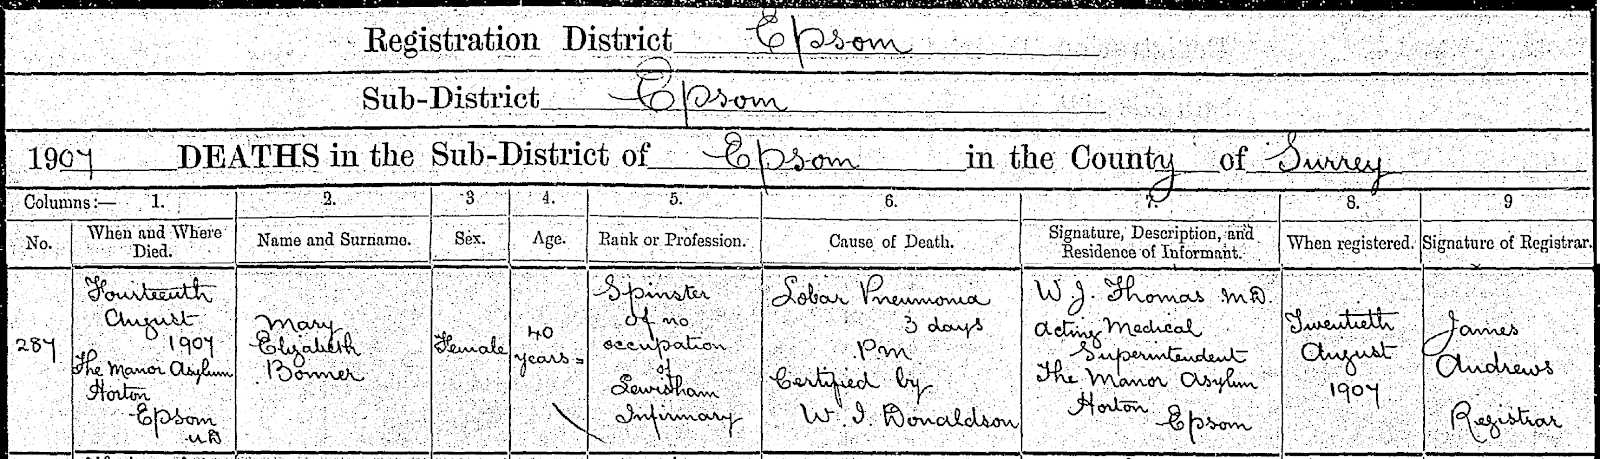 Registration District Epsom
Sub-District Epsom
1907 DEATHS in the Sub-District of Epsom in the County of Surrey
Columns:— 1. 2. 3 4. 5. 6. 7. 8. 9
No. When and Where Died. Name and Surname. Sex. Age. Rank or Profession. Cause of Death. Signature, Description, and Residence of Informant. When registered. Signature of Registrar.
287
Fourteenth
August
1907
The Manor Asylum
Horton
Epsom
U.D
Mary
Elizabeth
Bonner
Female
40
years
Spinster
of no
occupation
of
Lewisham
Infirmary
Lobar Pneumonia
3 days
P m
Certified by
W. I. Donaldson
W J. Thomas M.D.
Acting Medical
Superintendent
The Manor Asylum
Horton
Epsom
Twentieth
August
1907
James
Andrews
Registrar